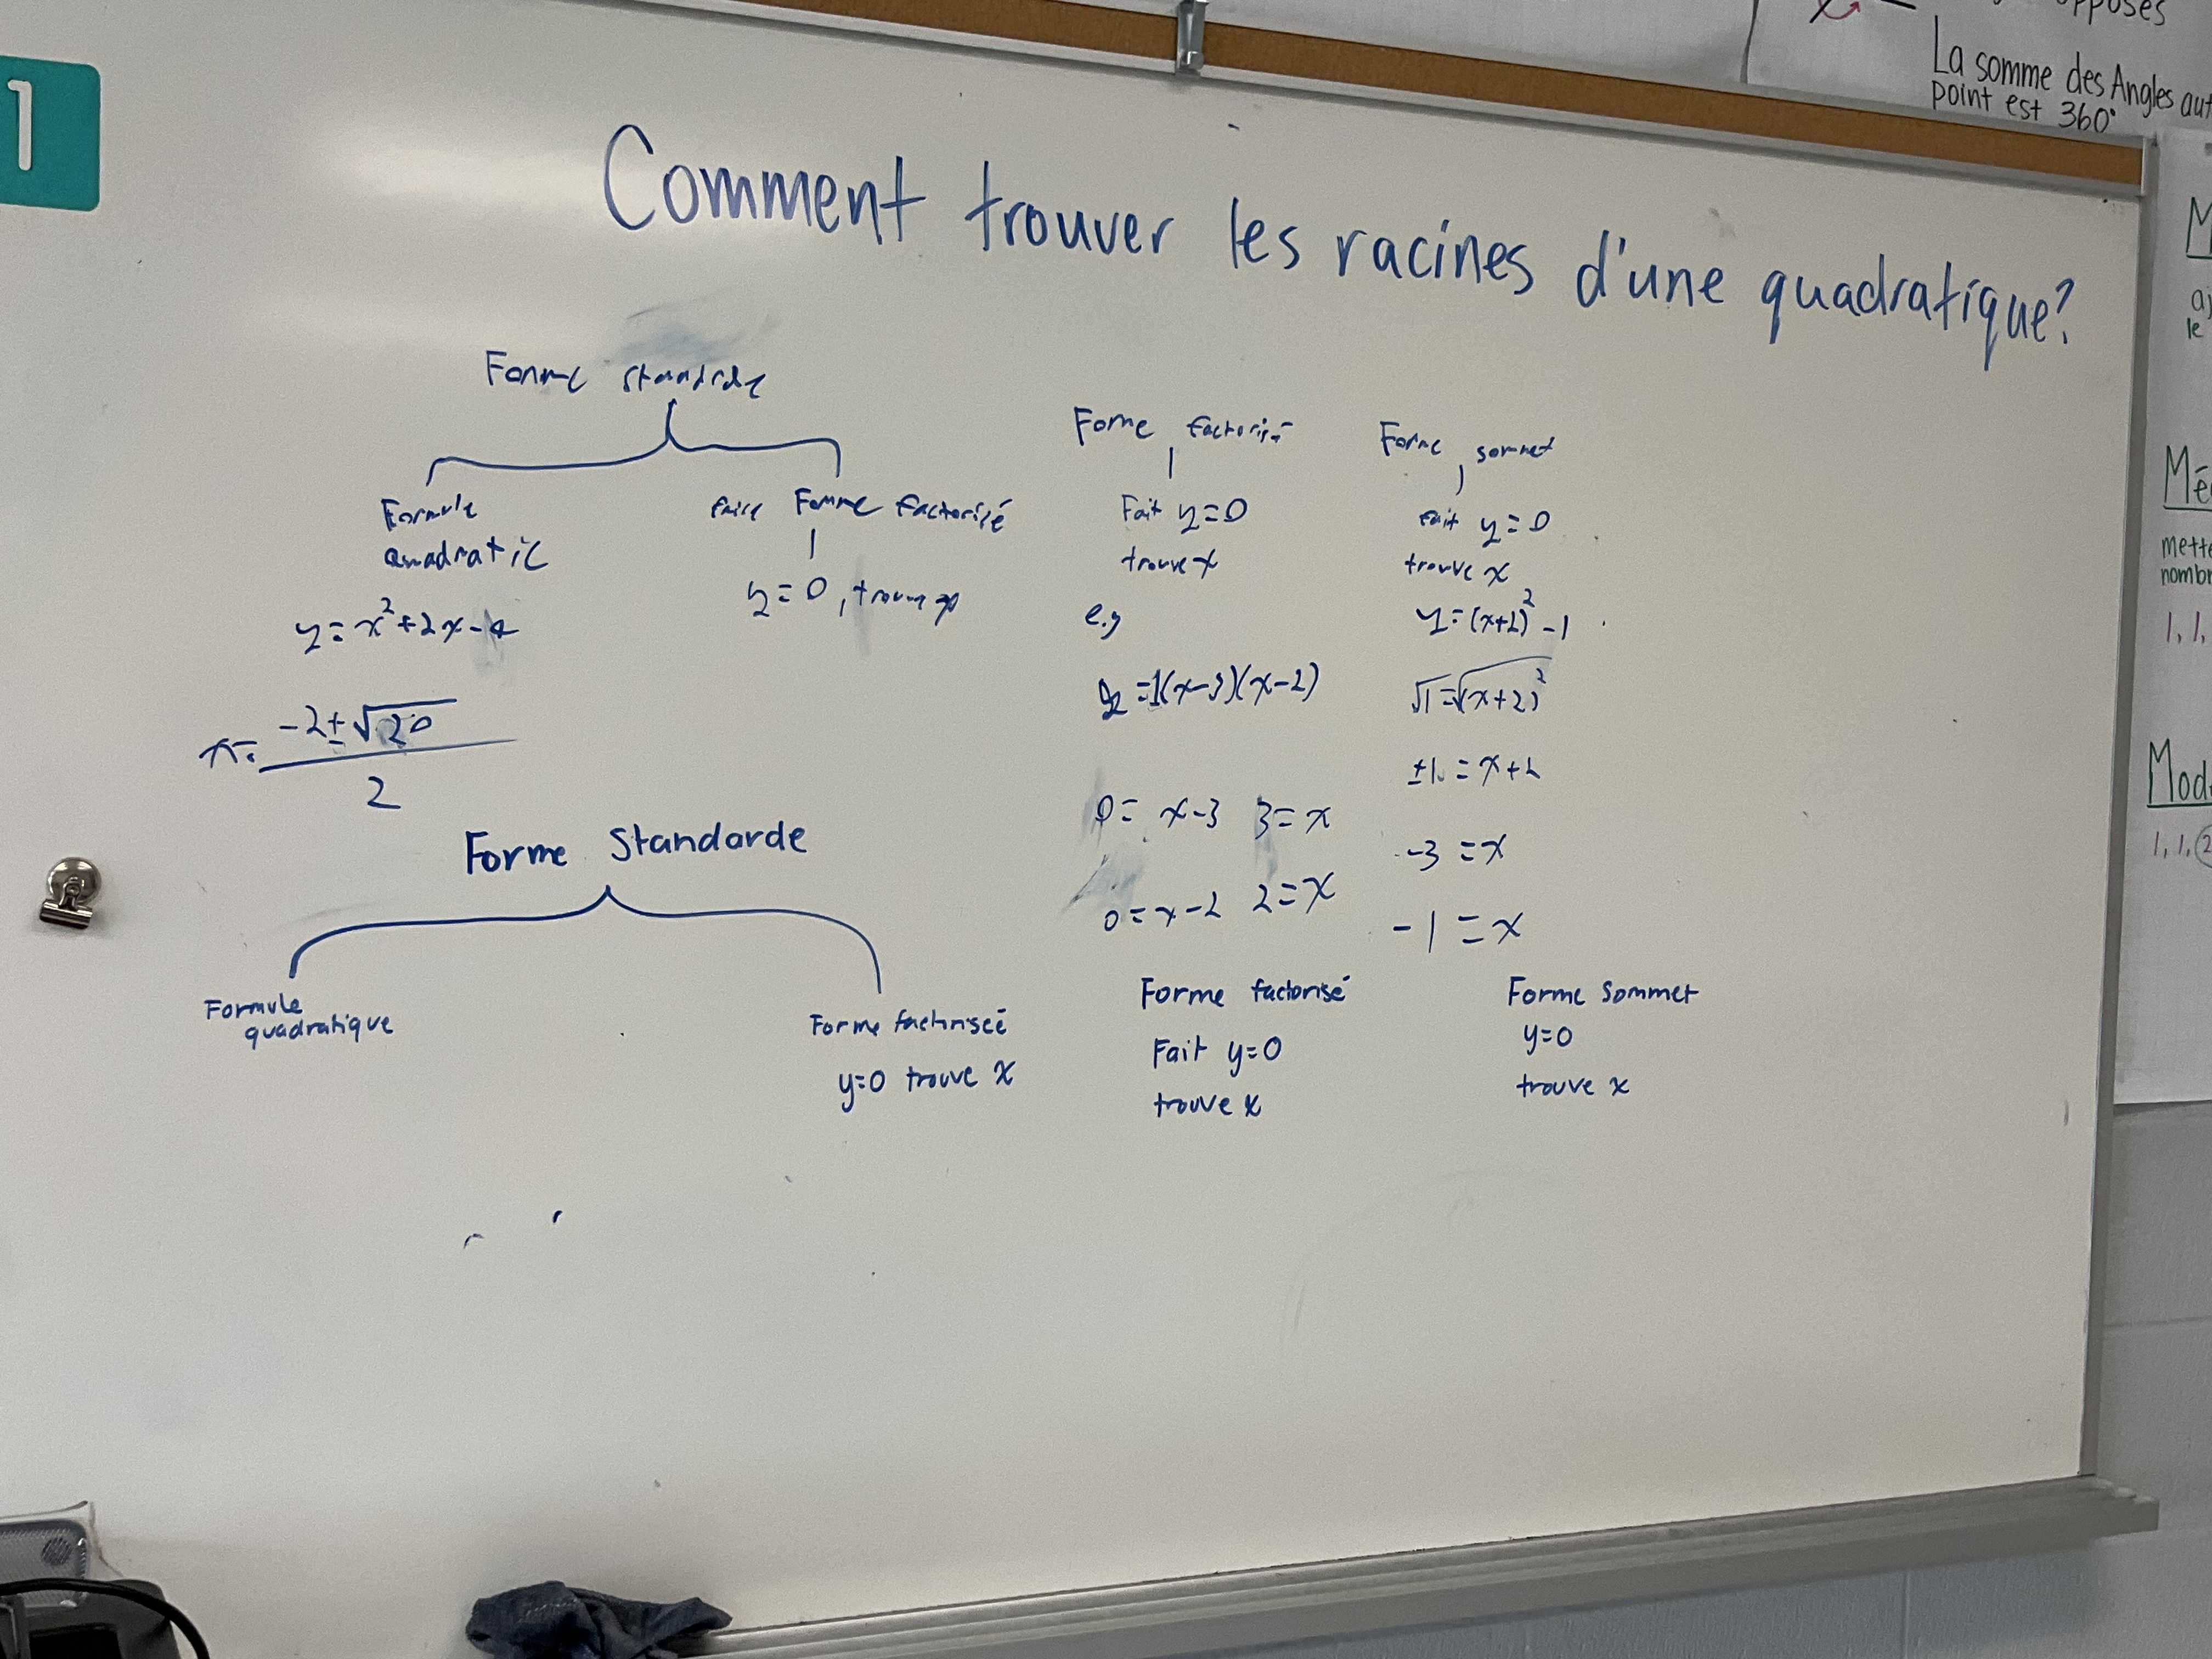 1
opposés
La somme des Angles aut
point est 360°
Comment trouver les racines d'une quadratique?
Forme standarde
Formule
quadratic
y=x²+2x-4
x= -2±√20
2
faire Forme factorisé
y=0, trouve x
Forme factorisé
Fait y=0
trouve x
e.g
y=1(x-3)(x-2)
0= x-3 3=x
0=x-2 2=x
Forme sommet
Fait y=0
trouve x
y=(x+2)²-1
√1=√(x+2)²
±1=x+2
-3=x
-1=x
Forme Standarde
Formule
quadratique
Forme factoriseé
y=0 trouve x
Forme factorisé
Fait y=0
trouve x
Forme sommet
y=0
trouve x
M
aj
le
Mé
mette
nombr
1, 1,
Mod
1, 1, 2